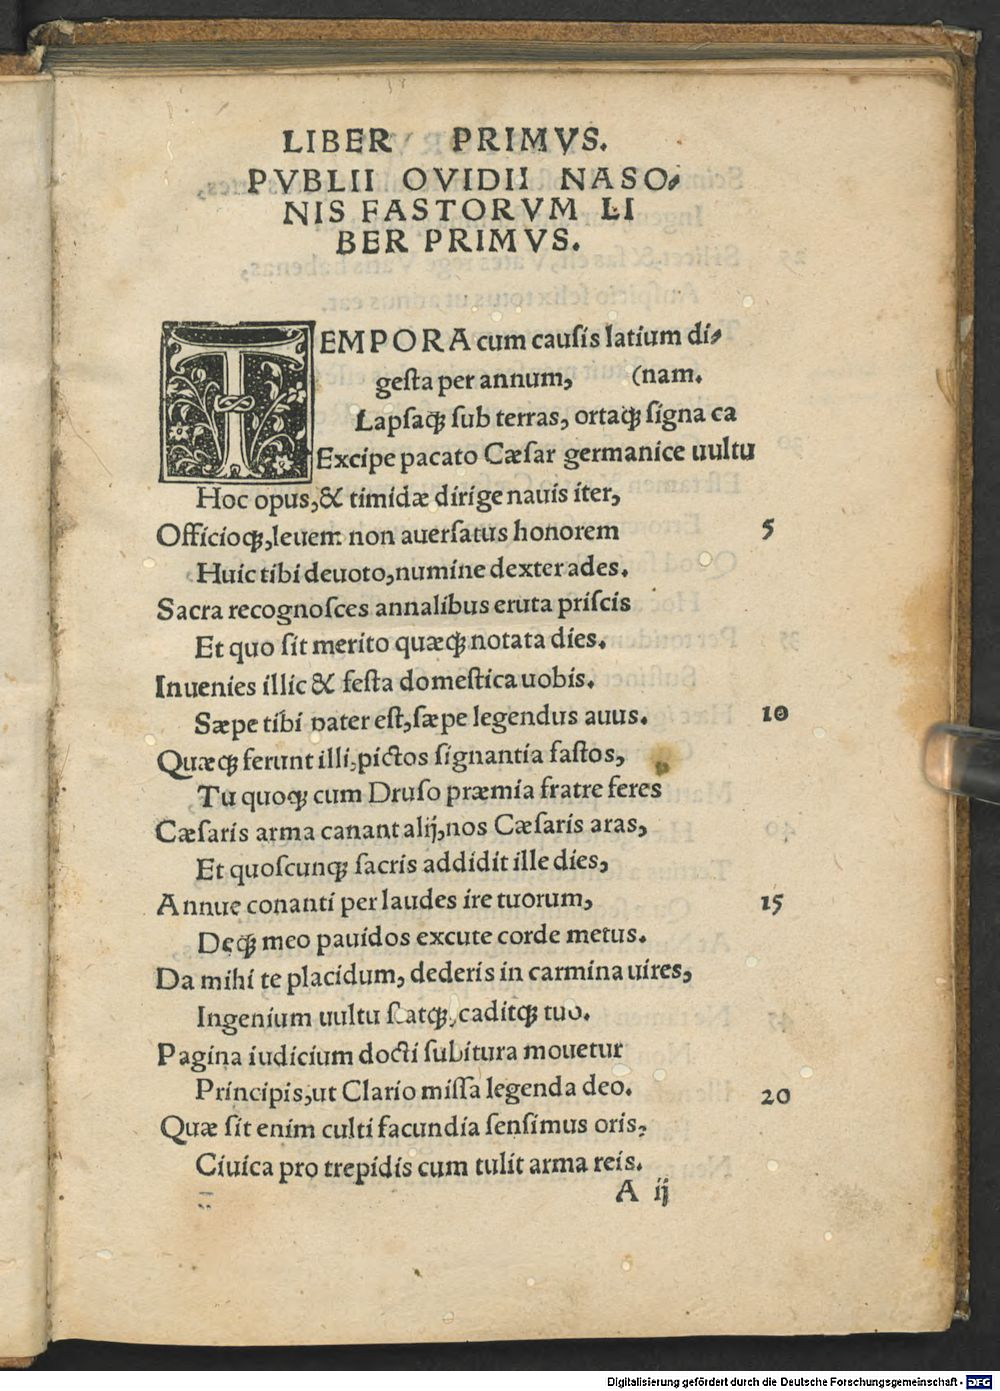 LIBER PRIMVS.
PVBLII OVIDII NASO⸗
NIS FASTORVM LI
BER PRIMVS.
TEMPORA cum causis latium di⸗
gesta per annum, (nam.
Lapsaq; sub terras, ortaq; signa ca
Excipe pacato Cæsar germanice uultu
Hoc opus, & timidæ dirige nauis iter,
Officioq;, leuem non auersatus honorem 5
Huic tibi deuoto, numine dexter ades.
Sacra recognosces annalibus eruta priscis
Et quo sit merito quæq; notata dies.
Inuenies illic & festa domestica uobis.
Sæpe tibi pater est, sæpe legendus auus. 10
Quæq; ferunt illi, pictos signantia fastos,
Tu quoq; cum Druso præmia fratre feres
Cæsaris arma canant alij, nos Cæsaris aras,
Et quoscunq; sacris addidit ille dies,
Annue conanti per laudes ire tuorum, 15
Deq; meo pauidos excute corde metus.
Da mihi te placidum, dederis in carmina uires,
Ingenium uultu statq;, caditq; tuo.
Pagina iudicium docti subitura mouetur
Principis, ut Clario missa legenda deo. 20
Quæ sit enim culti facundia sensimus oris,
Ciuica pro trepidis cum tulit arma reis.
A ij
Digitalisierung gefördert durch die Deutsche Forschungsgemeinschaft - DFG